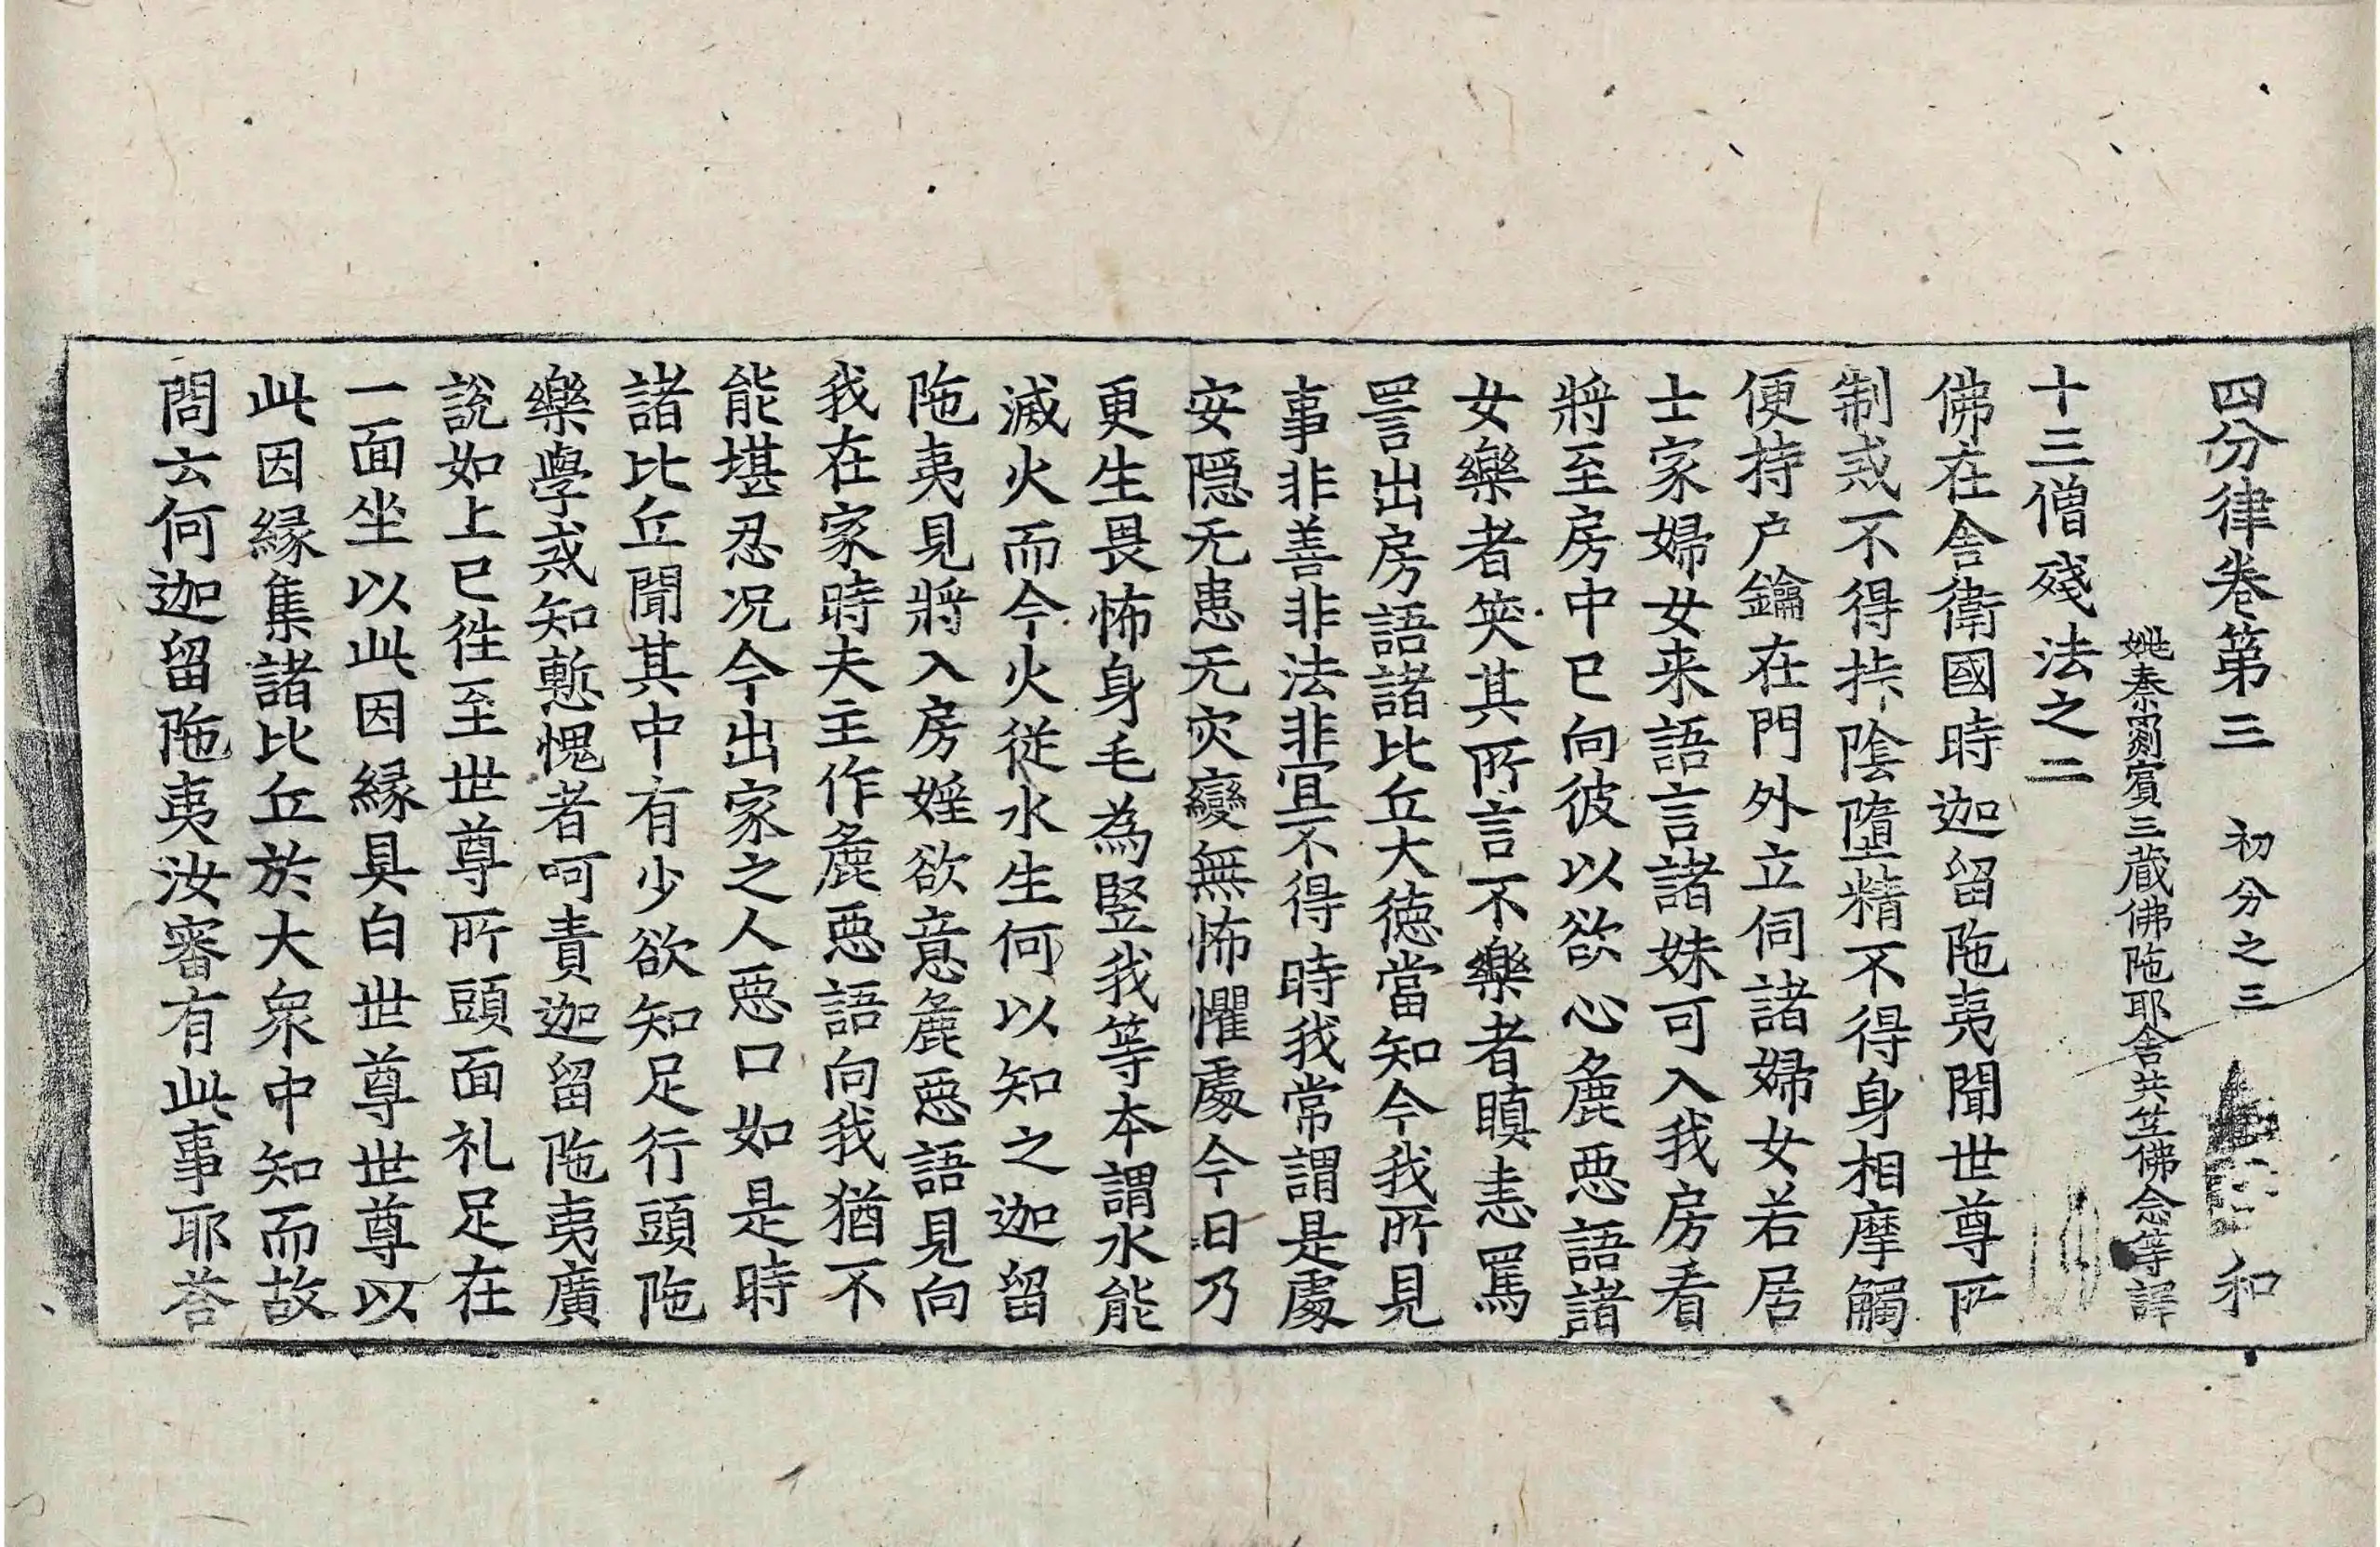 四分律卷第三 初分之三 和
姚秦罽賓三藏佛陁耶舍共竺佛念等譯
十三僧殘法之二
佛在舍衛國時迦留陁夷聞世尊所
制戒不得拤陰墮精不得身相摩觸
便持户鑰在門外立伺諸婦女若居
士家婦女来語言諸妹可入我房看
將至房中已向彼以欲心麁惡語諸
女樂者笑其所言不樂者瞋恚罵
詈出房語諸比丘大德當知今我所見
事非善非法非冝不得時我常謂是處
安隱无患无灾變無怖懼處今日乃
更生畏怖身毛為竪我等本謂水能
滅火而今火從水生何以知之迦留
陁夷見將入房婬欲意麁惡語見向
我在家時夫主作麁惡語向我猶不
能堪忍况今出家之人惡口如是時
諸比丘聞其中有少欲知足行頭陁
樂學戒知慙愧者呵責迦留陁夷廣
說如上已徃至世尊所頭面礼足在
一面坐以此因緣具白世尊世尊以
此因緣集諸比丘於大衆中知而故
問云何迦留陁夷汝審有此事耶荅